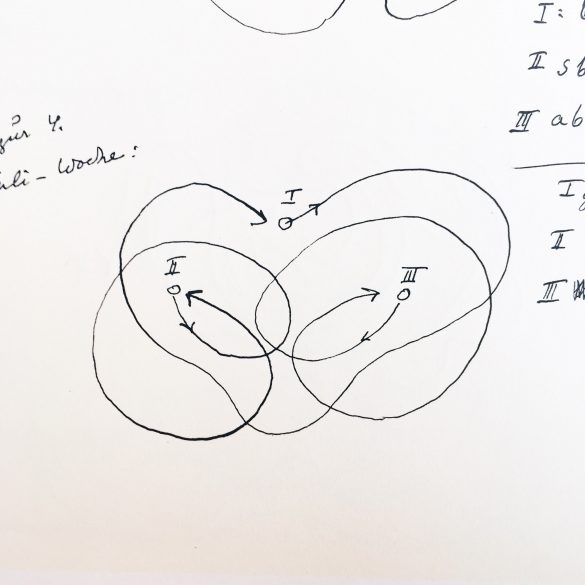 I:
II sb
III ab
zur 4.
Woche:
I
I
II
II
III
III